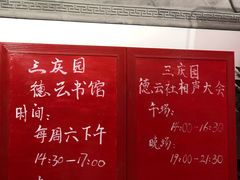 三庆园
德云书馆
时间:
每周六下午
14:30-17:00
三庆园
德云社相声大会
午场:
14:00-16:30
晚场:
19:00-21:30